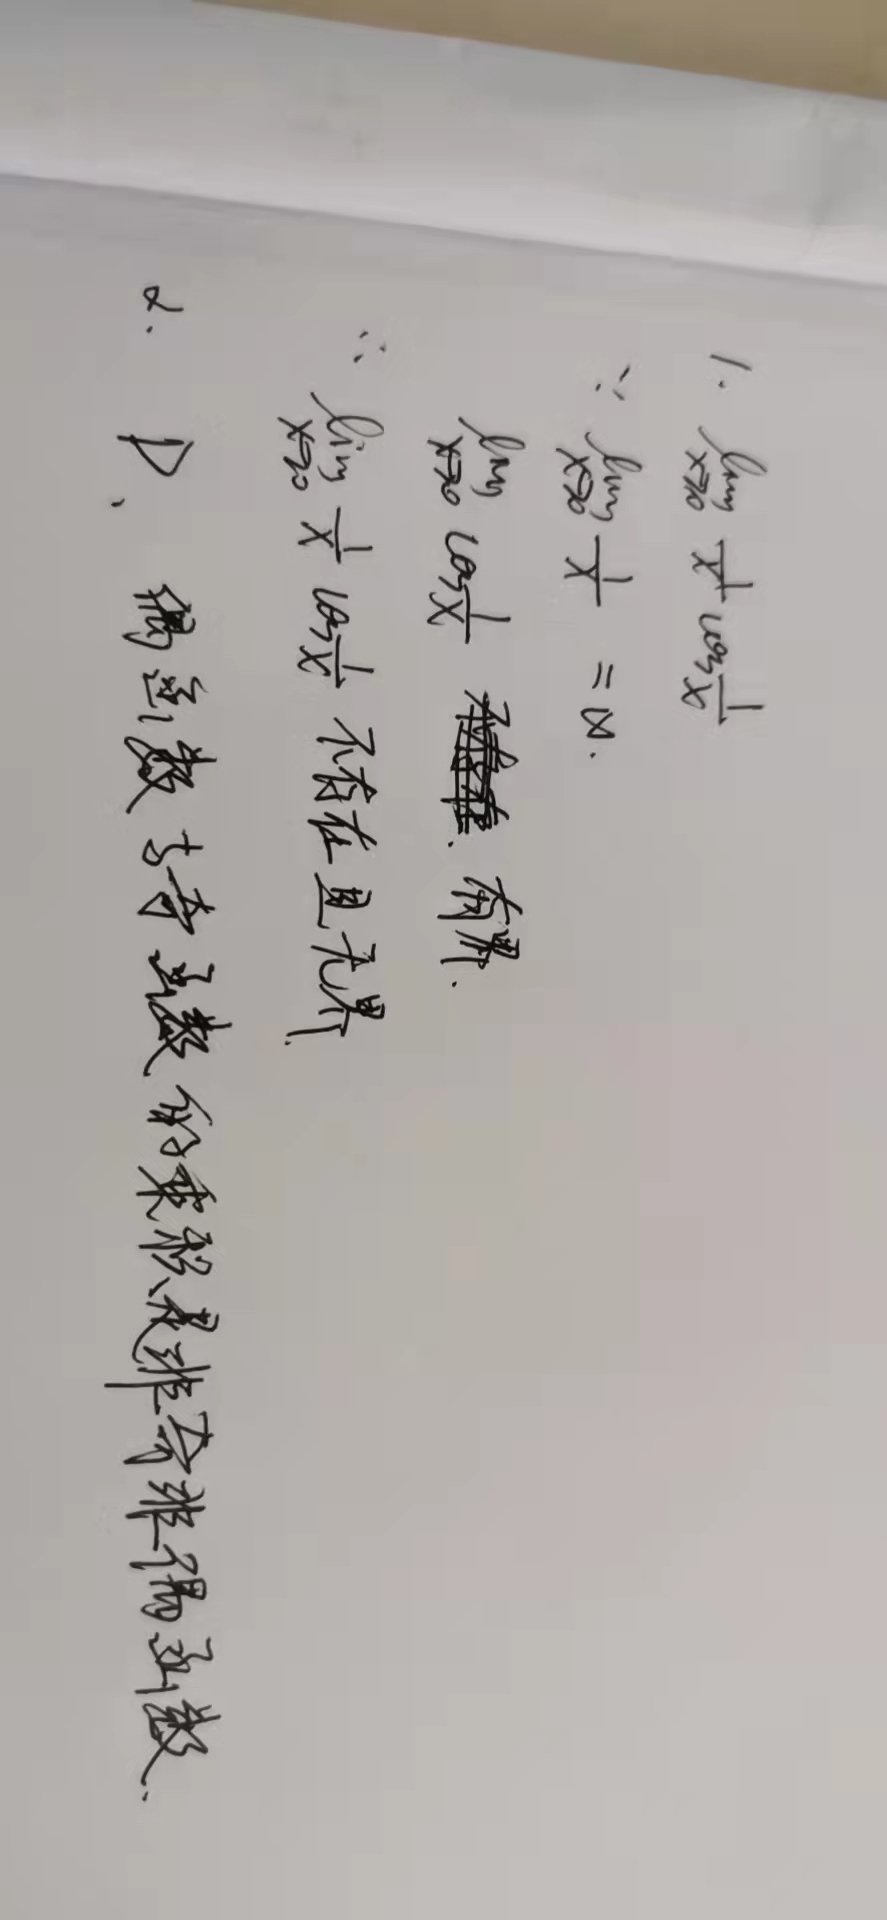 1. lim x→0 1/x cos 1/x
∵ lim x→0 1/x = ∞.
lim x→0 cos 1/x 有界.
∴ lim x→0 1/x cos 1/x 不存在且无界.
2. D、偶函数与奇函数的乘积是非奇非偶函数.